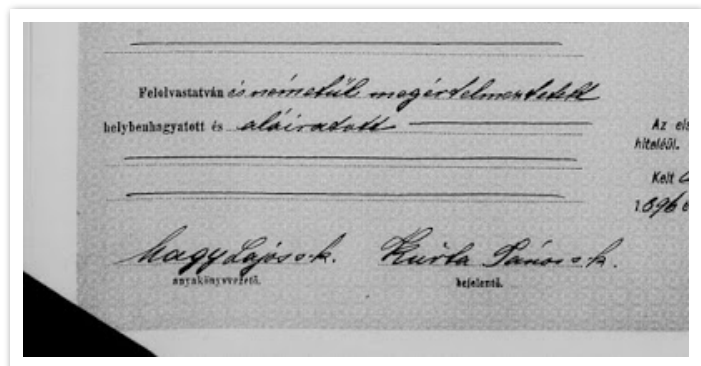 Felolvastatván és németül megértelmeztetett
helybenhagyatott és aláiratott
Az els
hiteléül.
Kelt
1896 é
Nagy Lajos s. k. Kurta János s. k.
anyakönyvvezető. bejelentő.